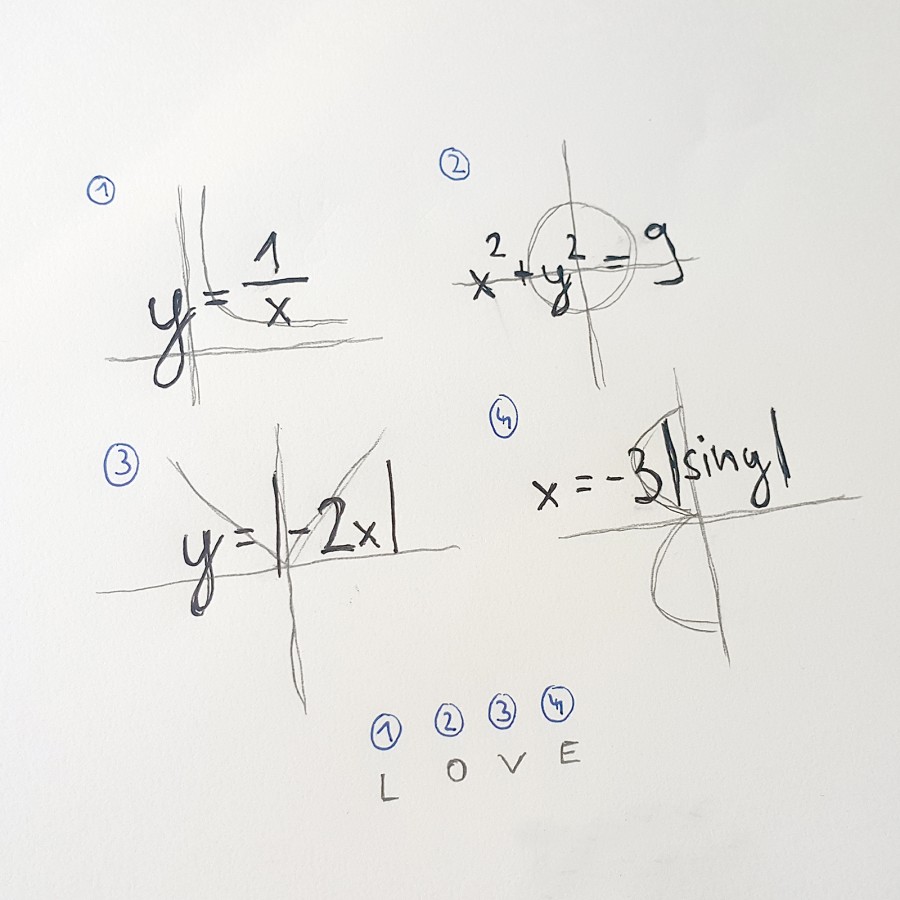 ①
y = 1/x
②
x² + y² = 9
③
y = |-2x|
④
x = -3|sin y|
① ② ③ ④
L O V E